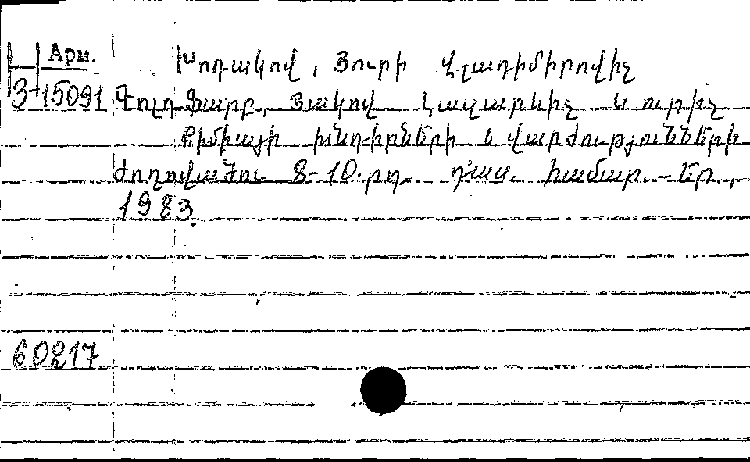 Арм. Խոդակով, Յուրի Վլադիմիրովիչ
3-15091 Գոլդֆարբ, Յակով Լազարևիչ և ուրիշ
Քիմիայի խնդիրների և վարժությունների
ժողովածու 8-10-րդ դաս. համար.-Եր.,
1983.
60217